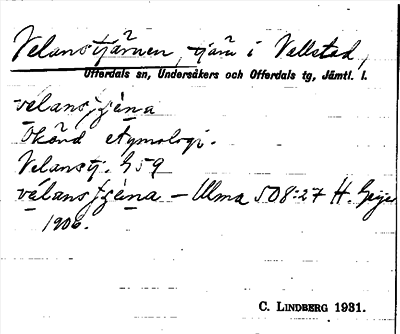 Velanstjärnen, tjärn i Vallstad,
Offerdals sn, Undersåkers och Offerdals tg, Jämtl. l.
vèlansʃtjèna
Okänd etymologi.
Velanstj. G59
vèlansʃtjèna – Ulma 508:27 H. Geijer
1906.
C. LINDBERG 1931.